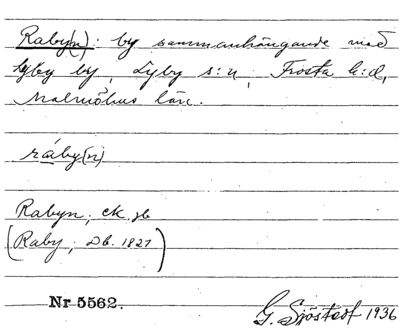 Raby(n): by sammanhängande med
Lyby by, Lyby s:n, Frosta h:d,
Malmöhus län.
ráby(n)
Rabyn, ek. kb
(Raby, Db. 1827)
Nr 5562.
G. Sjöstedt 1936